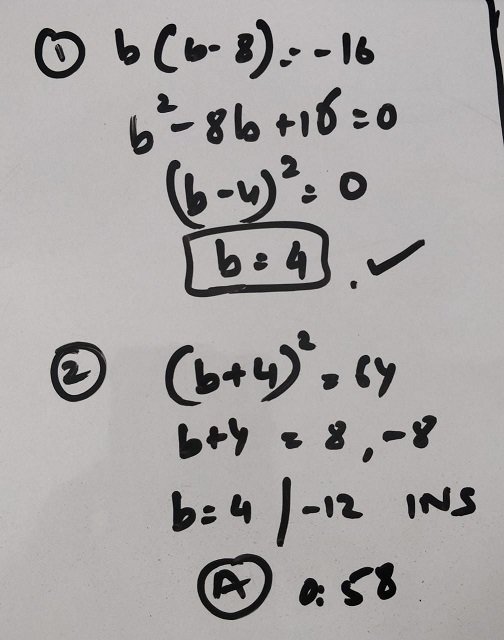 ① b(b-8) = -16
b² - 8b + 16 = 0
(b-4)² = 0
b = 4 . ✓
② (b+4)² = 64
b+4 = 8, -8
b = 4 | -12 INS
Ⓐ 0:58